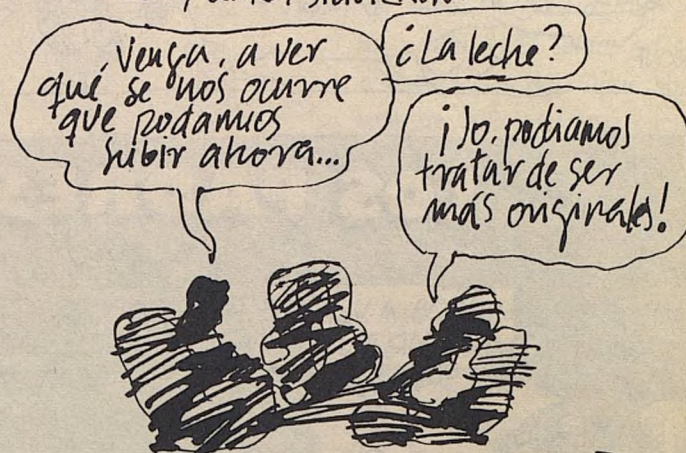 Venga, a ver
qué se nos ocurre
que podamos
subir ahora...
¿La leche?
¡Jo, podiamos
tratar de ser
más originales!